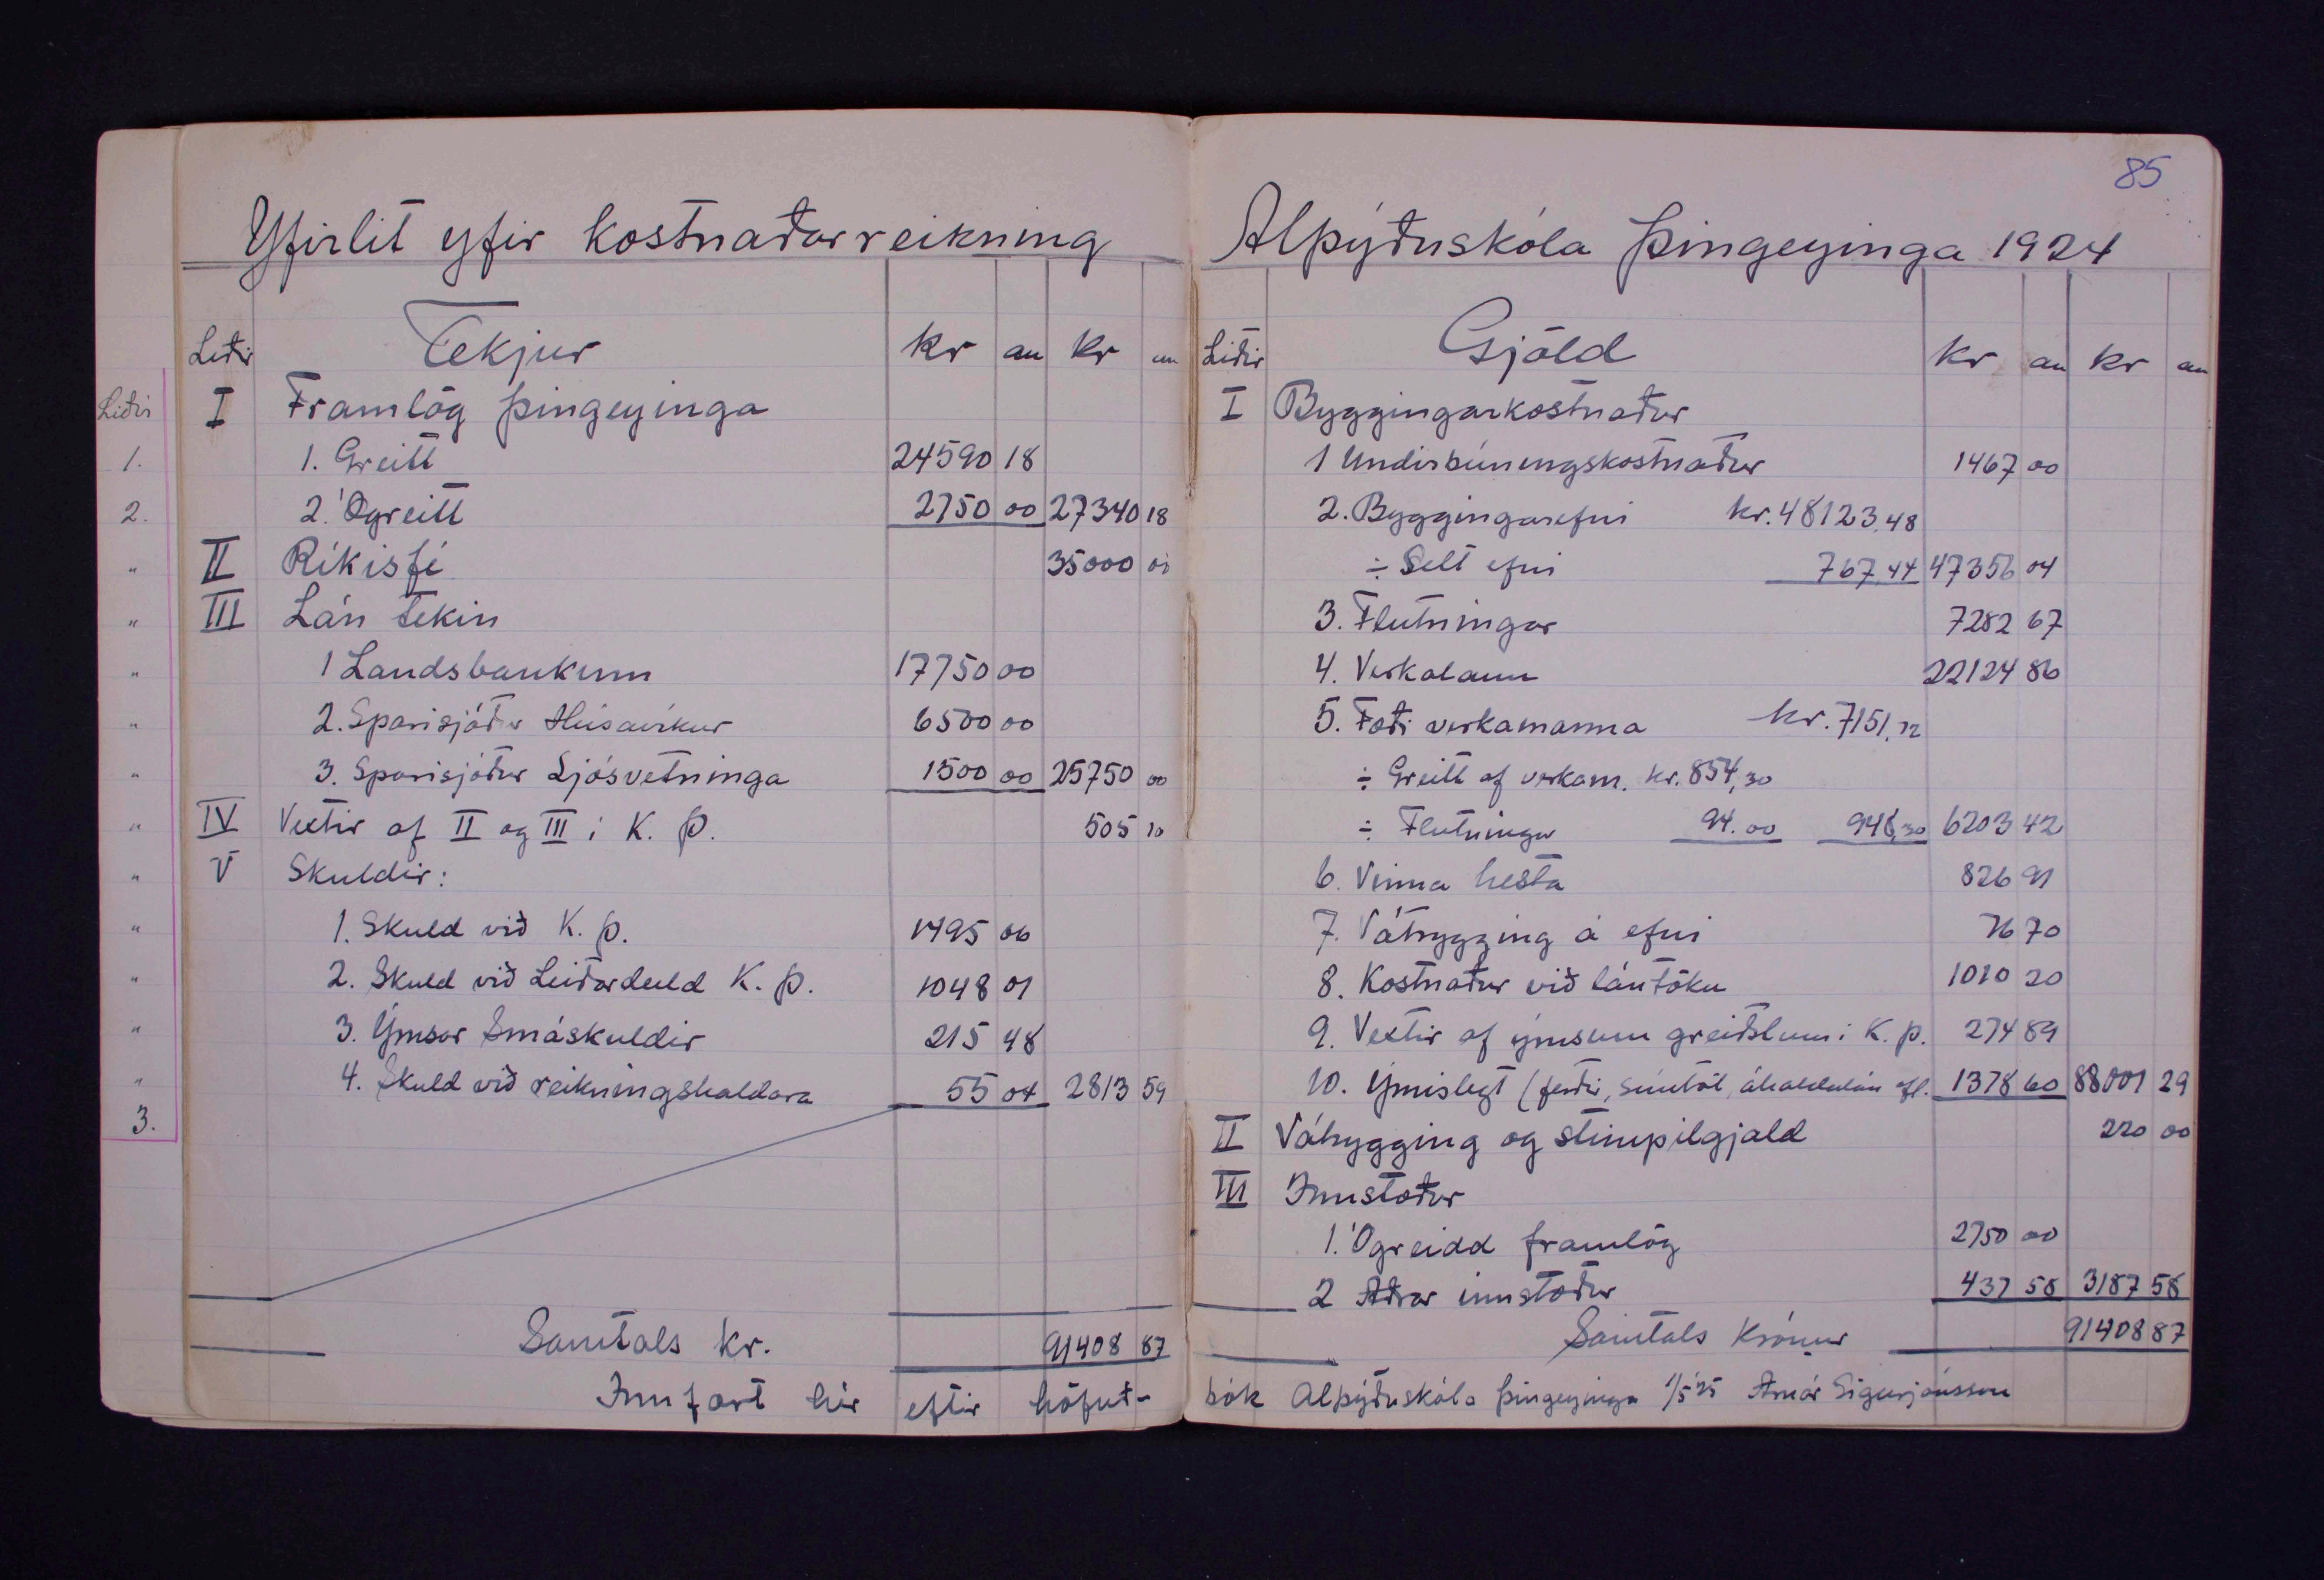 Liðir
1.
2.
"
"
"
"
"
"
"
"
"
"
"
3.
Yfirlit yfir kostnaðarreikning
Liðir Tekjur kr au kr au
I Framlög Þingeyinga
1. Greitt 24590 18
2. Ógreitt 2750 00 27340 18
II Ríkisfé 35000 00
III Lán tekin
1 Landsbankinn 17750 00
2. Sparisjóður Húsavíkur 6500 00
3. Sparisjóður Ljósvetninga 1500 00 25750 00
IV Vextir af II og III í K. Þ. 505 10
V Skuldir:
1. Skuld við K. Þ. 1495 06
2. Skuld við Leiðardeild K. Þ. 1048 01
3. Ýmsar Smáskuldir 215 48
4. Skuld við reikningshaldara 55 04 2813 59
Samtals kr. 91408 87
Innfært hér eftir höfuð-
85
Alþýðuskóla Þingeyinga 1924
Liðir Gjöld kr au kr au
I Byggingarkostnaður
1 Undirbúningskostnaður 1467 00
2. Byggingarefni kr. 48123,48
÷ Selt efni 767,44 47356 04
3. Flutningar 7282 67
4. Verkalaun 22124 86
5. Fæði verkamanna kr. 7151,72
÷ Greitt af verkam. kr. 854,30
÷ Flutningur 94.00 948,30 6203 42
6. Vinna hesta 826 91
7. Vátrygging á efni 76 70
8. Kostnaður við lántöku 1010 20
9. Vextir af ýmsum greiðslum í K. Þ. 274 89
10. Ýmislegt (ferðir, símtöl, áhaldalán ofl. 1378 60 88001 29
II Vátrygging og stimpilgjald 220 00
III Innstæður
1. Ógreidd framlög 2750 00
2 Aðrar innstæður 437 58 3187 58
Samtals Krónur 91408 87
bók Alþýðuskóla Þingeyinga 1/5 '25 Arnór Sigurjónsson